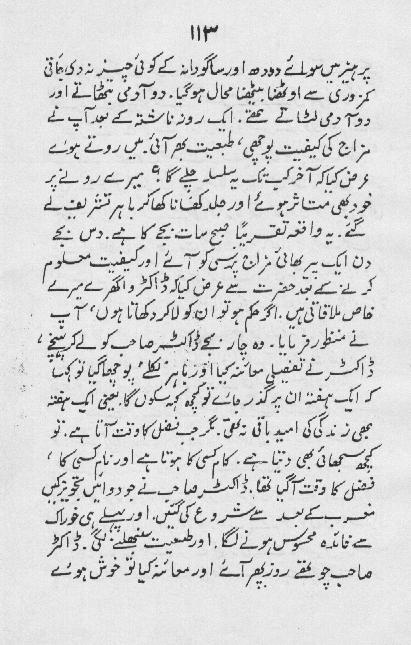 ۱۱۳
پرہیز میں سوائے دودھ اور ساگودانہ کے کوئی چیز نہ دی جاتی
کمزوری سے اوٹھنا بیٹھنا محال ہوگیا۔ دو آدمی بٹھاتے اور
دو آدمی لٹاتے تھے۔ ایک روز ناشتہ کے بعد آپ نے
مزاج کی کیفیت پوچھی، طبعیت بھر آئی۔ میں روتے ہوئے
عرض کیا کہ آخر کب تک یہ سلسلہ چلے گا؟ میرے رونے پر
خود بھی متاثر ہوئے اور جلد کھانا کھا کر باہر تشریف لے
گئے۔ یہ واقعہ تقریباً صبح سات بجے کا ہے۔ دس بجے
دن ایک پیر بھائی مزاج پرسی کو آئے اور کیفیت معلوم
کرنے کے بعد حضرت سے عرض کیا کہ ڈاکٹر واکھرے میرے
خاص ملاقاتی ہیں۔ اگر حکم ہو تو ان کو لا کر دکھاتا ہوں، آپ
نے منظور فرمایا۔ وہ چار بجے ڈاکٹر صاحب کو لے کر پہنچے،
ڈاکٹر نے تفصیلی معائنہ کیا اور باہر نکلے، پوچھا گیا تو کہا
کہ ایک ہفتہ ان پر گذر جائے تو کچھ کہہ سکوں گا۔ یعنی ایک ہفتہ
بھی زندگی کی امید باقی نہ تھی۔ مگر جب فضل کا وقت آتا ہے۔ تو
کچھ سجھائی بھی دیتا ہے۔ کام کسی کا ہوتا ہے اور نام کسی کا،
فضل کا وقت آگیا تھا۔ ڈاکٹر صاحب نے جو دوائیں تجویز کیں
مغرب کے بعد سے شروع کی گئیں۔ اور پہلے ہی خوراک
سے فائدہ محسوس ہونے لگا۔ اور طبعیت سنبھلنے لگی۔ ڈاکٹر
صاحب چوتھے روز پھر آئے اور معائنہ کیا تو خوش ہوئے